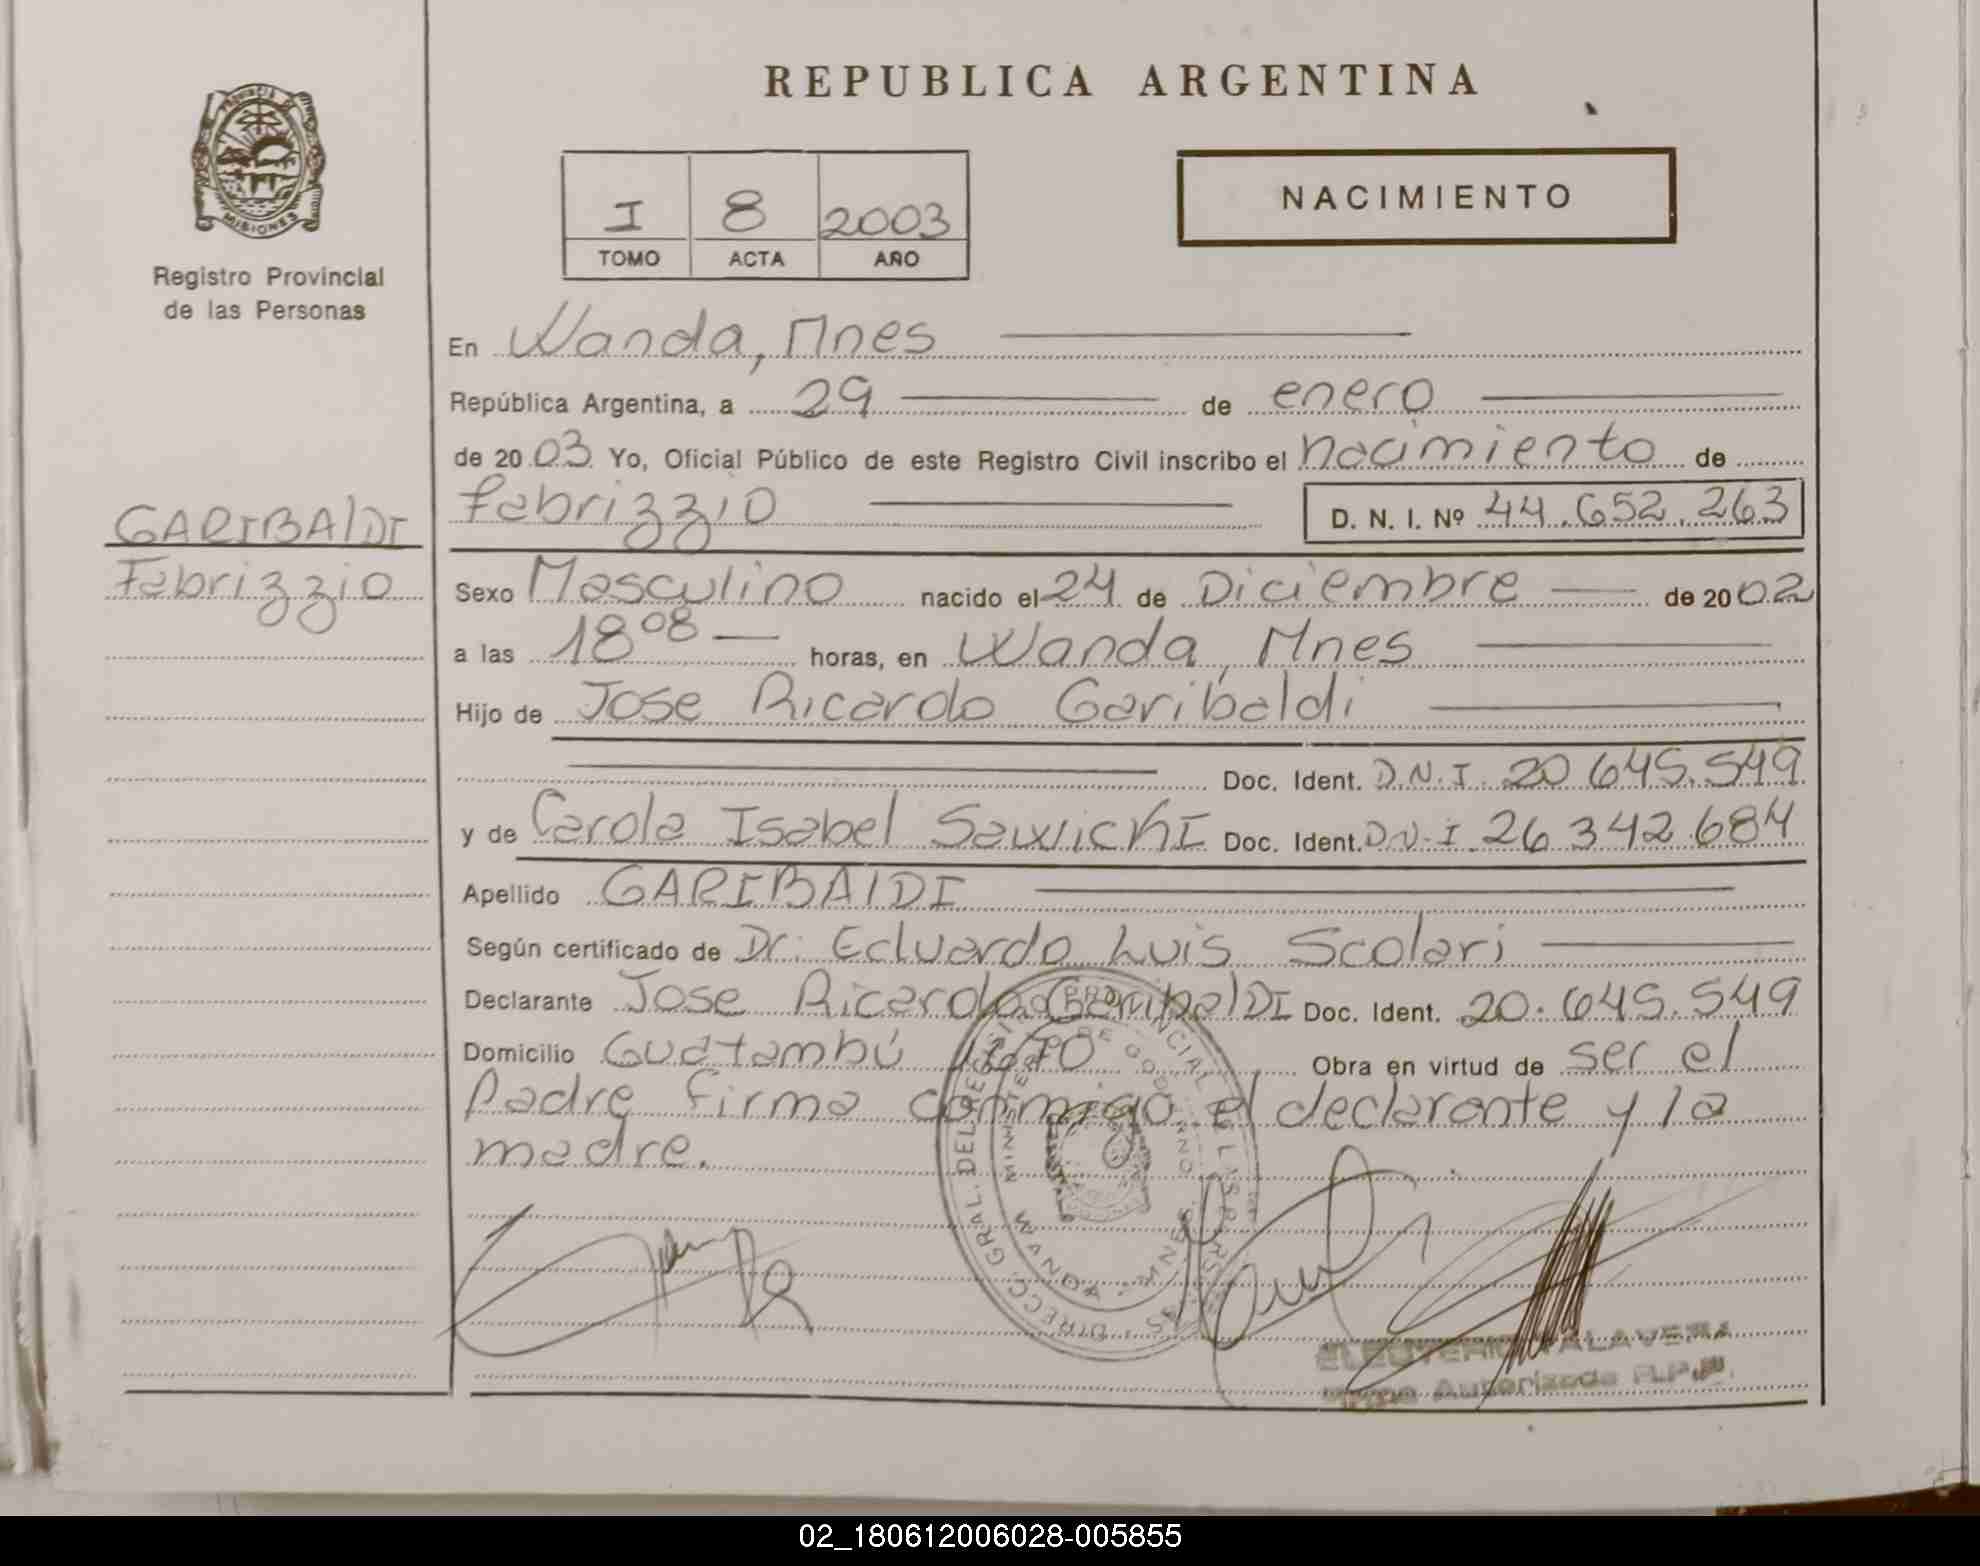 REPUBLICA ARGENTINA
PROVINCIA DE
MISIONES
Registro Provincial
de las Personas
I 8 2003
TOMO ACTA AÑO
NACIMIENTO
En Wanda, Mnes
República Argentina, a 29 de enero
de 2003 Yo, Oficial Público de este Registro Civil inscribo el nacimiento de
Fabrizzio D. N. I. Nº 44.652.263
GARIBALDI
Fabrizzio
Sexo Masculino nacido el 24 de Diciembre de 2002
a las 18 08 horas, en Wanda, Mnes
Hijo de Jose Ricardo Garibaldi
Doc. Ident. D.N.I. 20.645.549
y de Carola Isabel Sawicki Doc. Ident. D.N.I. 26.342.684
Apellido GARIBALDI
Según certificado de Dr. Eduardo Luis Scolari
Declarante Jose Ricardo GaribalDI Doc. Ident. 20.645.549
Domicilio Guatambú Obra en virtud de ser el
Padre firma conmigo el declarante y la
madre.
DIRECC. GRAL. DEL REGISTRO PROVINCIAL DE LAS PERSONAS
MINISTERIO DE GOBIERNO
WANDA MNES.
ELEUTERIO TALAVERA
Firma Autorizada R.P.P.
02_180612006028-005855